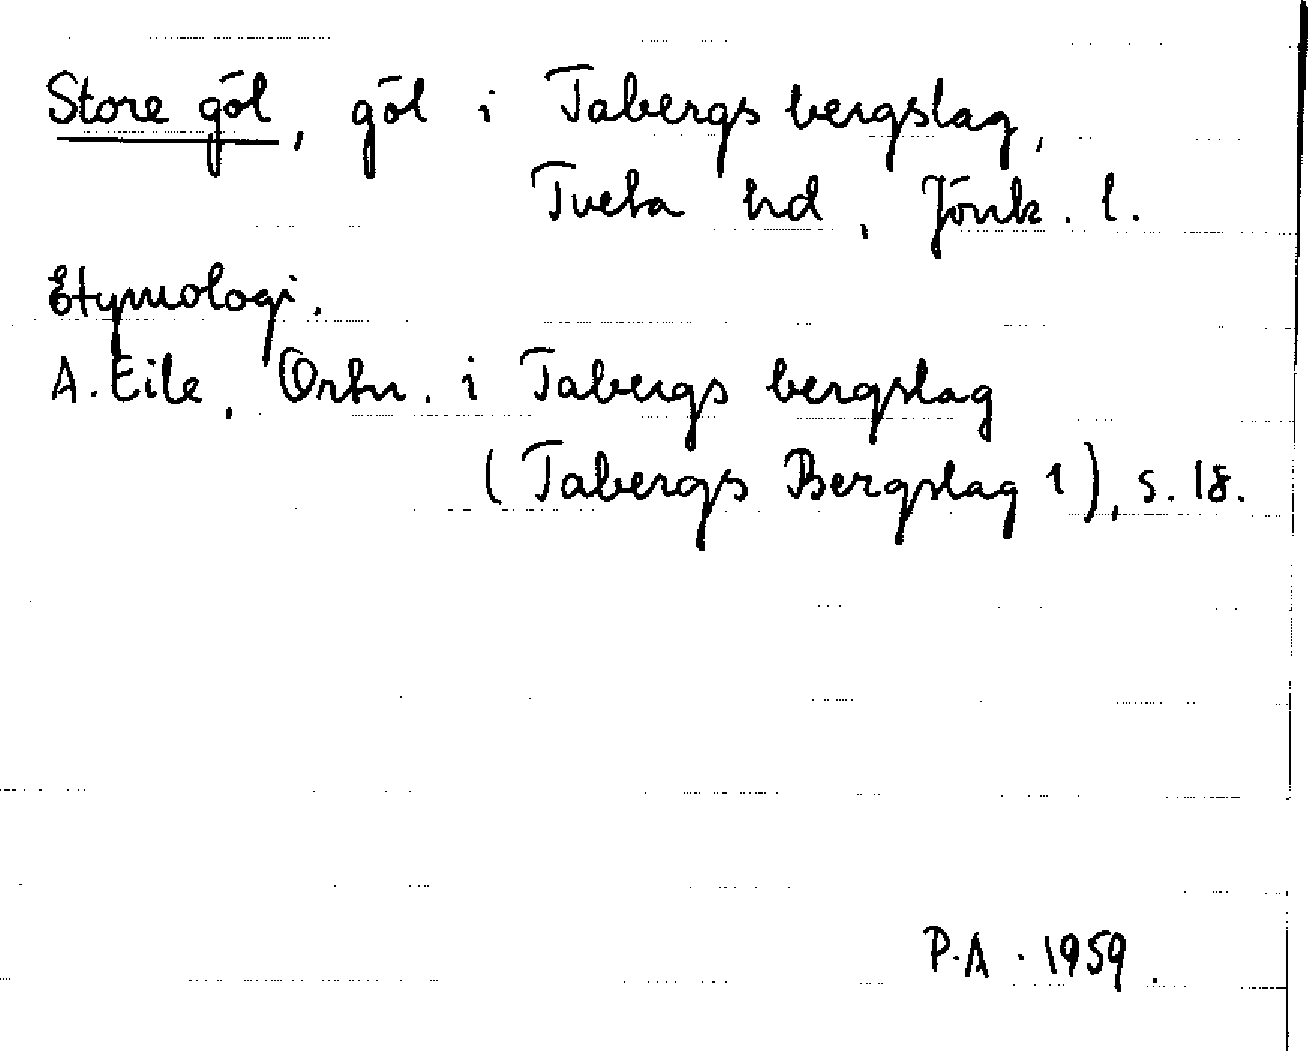 Store göl, göl i Tabergs bergslag,
Tveta hd, Jönk. l.
Etymologi.
A. Eile, Ortn. i Tabergs bergslag
(Tabergs Bergslag 1), s. 18.
P.A. 1959.